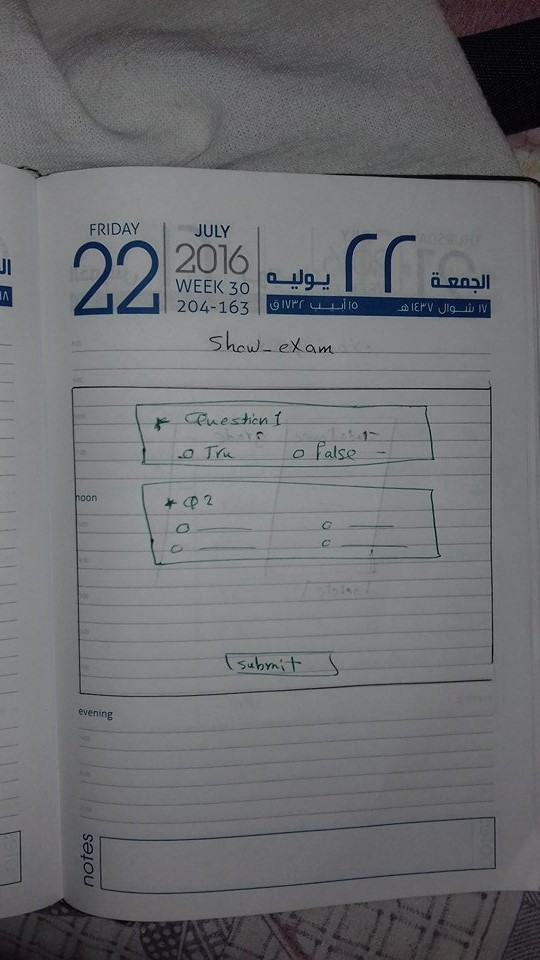 FRIDAY
22
JULY
2016
WEEK 30
204-163
٢٢ يوليه
الجمعة
١٧ شوال ١٤٣٧ هـ
١٥ أبيب ١٧٣٢ ق
Show_exam
* Question 1
o Tru o False
noon
* Q 2
submit
evening
notes